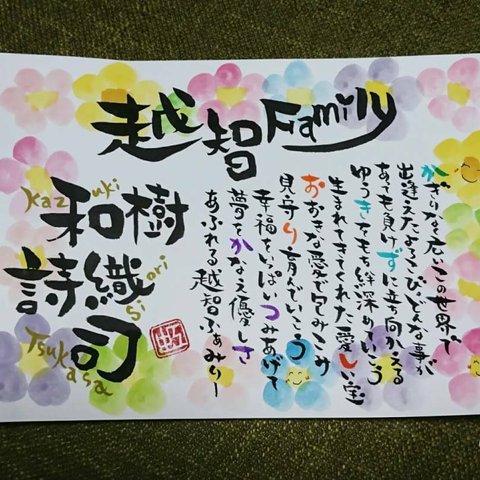 越智Family
かぎりなく広いこの世界で
出逢えたよろこびどんな事が
あっても負けずに立ち向かえる
ゆうきをもち絆深めていこう
生まれてきてくれた愛しい宝
おおきな愛で包みこみ
見守り育んでいこう
幸福をいっぱいつみあげて
夢をかなえ優しさ
あふれる越智ふぁみりー
Kazuki
和樹
Siori
詩織
司
Tsukasa